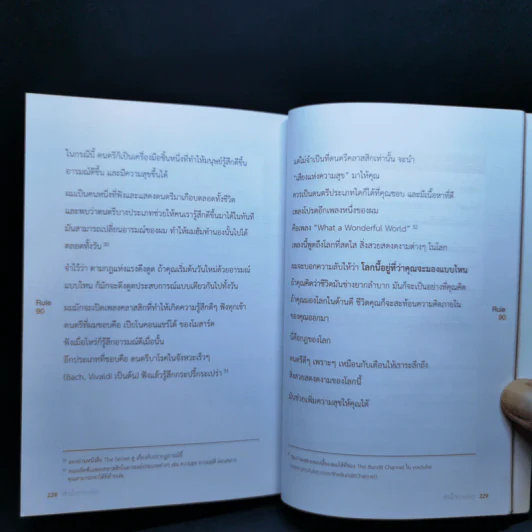 ในกรณีนี้ ดนตรีก็เป็นเครื่องมือชิ้นหนึ่งที่ทำให้มนุษย์รู้สึกดีขึ้น
อารมณ์ดีขึ้น และมีความสุขขึ้นได้
ผมเป็นคนหนึ่งที่ฟังและแสดงดนตรีมาเกือบตลอดทั้งชีวิต
และพบว่าดนตรีบางประเภทช่วยให้คนเรารู้สึกดีขึ้นมาได้ในทันที
มันสามารถเปลี่ยนอารมณ์ของผม ทำให้ผมฮัมทำนองนั้นไปได้
ตลอดทั้งวัน
จำไว้ว่า ตามกฎแห่งแรงดึงดูด ถ้าคุณเริ่มต้นวันใหม่ด้วยอารมณ์
แบบไหน ก็มักจะดึงดูดประสบการณ์แบบเดียวกันไปทั้งวัน
ผมมักจะเปิดเพลงคลาสสิกที่ทำให้เกิดความรู้สึกดีๆ ฟังทุกเช้า
ดนตรีที่ผมชอบคือ เปียโนคอนแชร์โต้ ของโมสาร์ต
ฟังเมื่อไหร่ก็รู้สึกอารมณ์ดีเมื่อนั้น
อีกประเภทที่ชอบคือ ดนตรีบาโรคในจังหวะเร็วๆ
(Bach, Vivaldi เป็นต้น) ฟังแล้วรู้สึกกระปรี้กระเปร่า
Rule
90
228
แต่ไม่จำเป็นที่ดนตรีคลาสสิกเท่านั้น จะนำ
"เสียงแห่งความสุข" มาให้คุณ
ควรเป็นดนตรีประเภทใดก็ได้ที่คุณชอบ และมีเนื้อหาที่ดี
เพลงโปรดอีกเพลงหนึ่งของผม
คือเพลง "What a Wonderful World"
เพลงนี้พูดถึงโลกที่สดใส สิ่งสวยงดงามต่างๆ ในโลก
ผมจะบอกความลับให้ว่า โลกนี้อยู่ที่ว่าคุณจะมองแบบไหน
ถ้าคุณคิดว่าชีวิตมันช่างยากลำบาก มันก็จะเป็นอย่างที่คุณคิด
ถ้าคุณมองโลกในด้านดี ชีวิตคุณก็จะสะท้อนความคิดภายใน
ของคุณออกมา
นี่คือกฎของโลก
ดนตรีดีๆ เพราะๆ เหมือนกับเตือนให้เราระลึกถึง
สิ่งสวยสดงดงามของโลกนี้
มันช่วยเพิ่มความสุขให้คุณได้
Rule
90
229